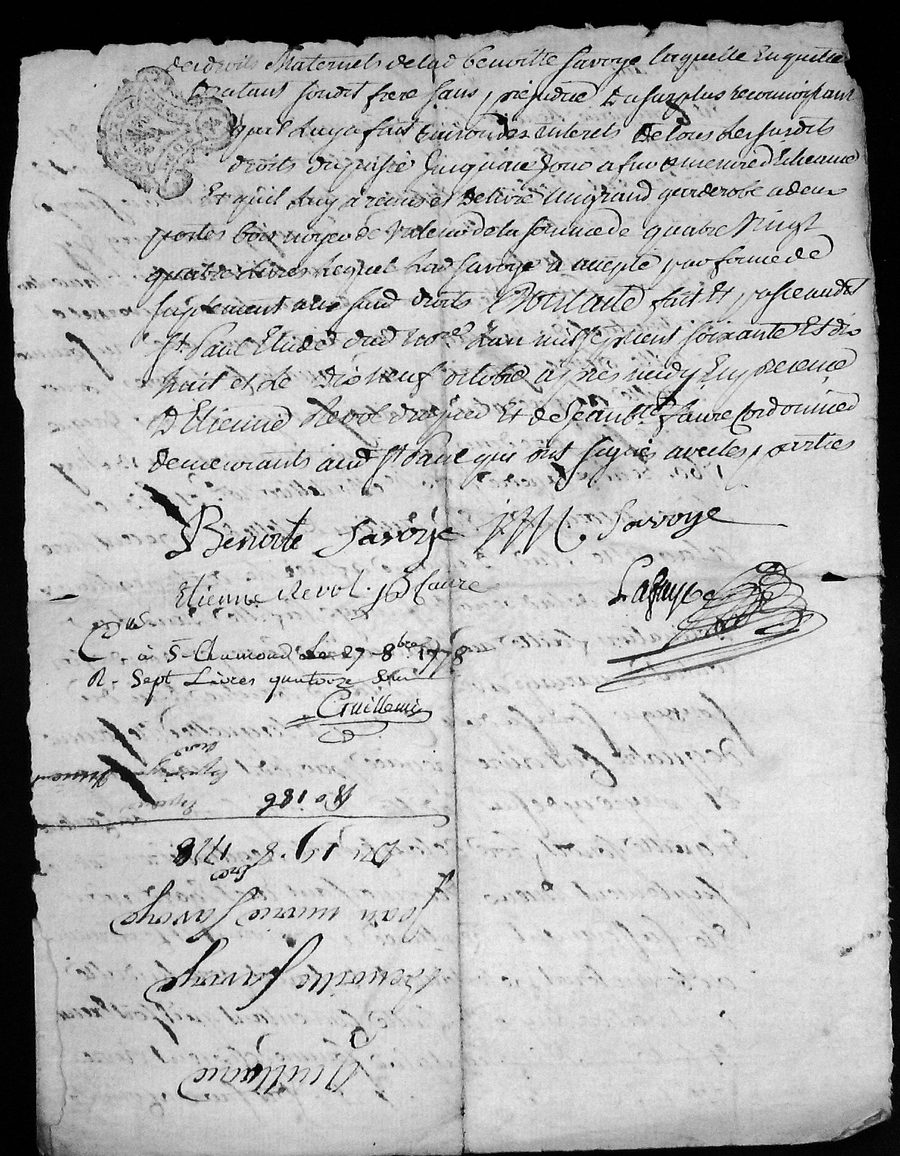 desdroits Maternels de lad benoitte Savoye laquelle En quitte
D'autant sondit frere sans prejudice du surplus reconnoissant
quil luy a fait raison des interets de tous lesdits
droits du passé jusqua ce jour
Et quil luy a remis et delivré un grand garderobe a deux
portes bois noyer de valeur de la somme de quatre Vingt
quatre livres lequel lad Savoye a accepté par forme de
suplement aux susd droits Dont acte fait et passé audit
St Paul Etude dud nore Lan mil sept cent soixante Et dix
huit et le dix neuf octobre après midy En presence
D'Etienne Revol Et de Jean Bte faure Cordonnier
demeurants aud St Paul qui ont signés avec les parties
Benoite Savoye JM Savoye
Etienne Revol. JB faure
Lafay
Clé
à St Chamond Le 27 8bre 1778
R. Sept Livres quatorze sous
Guillemin
No 186
Du 19. 8 1778
Jean marie Savoye
Benoitte Savoye
Quittance